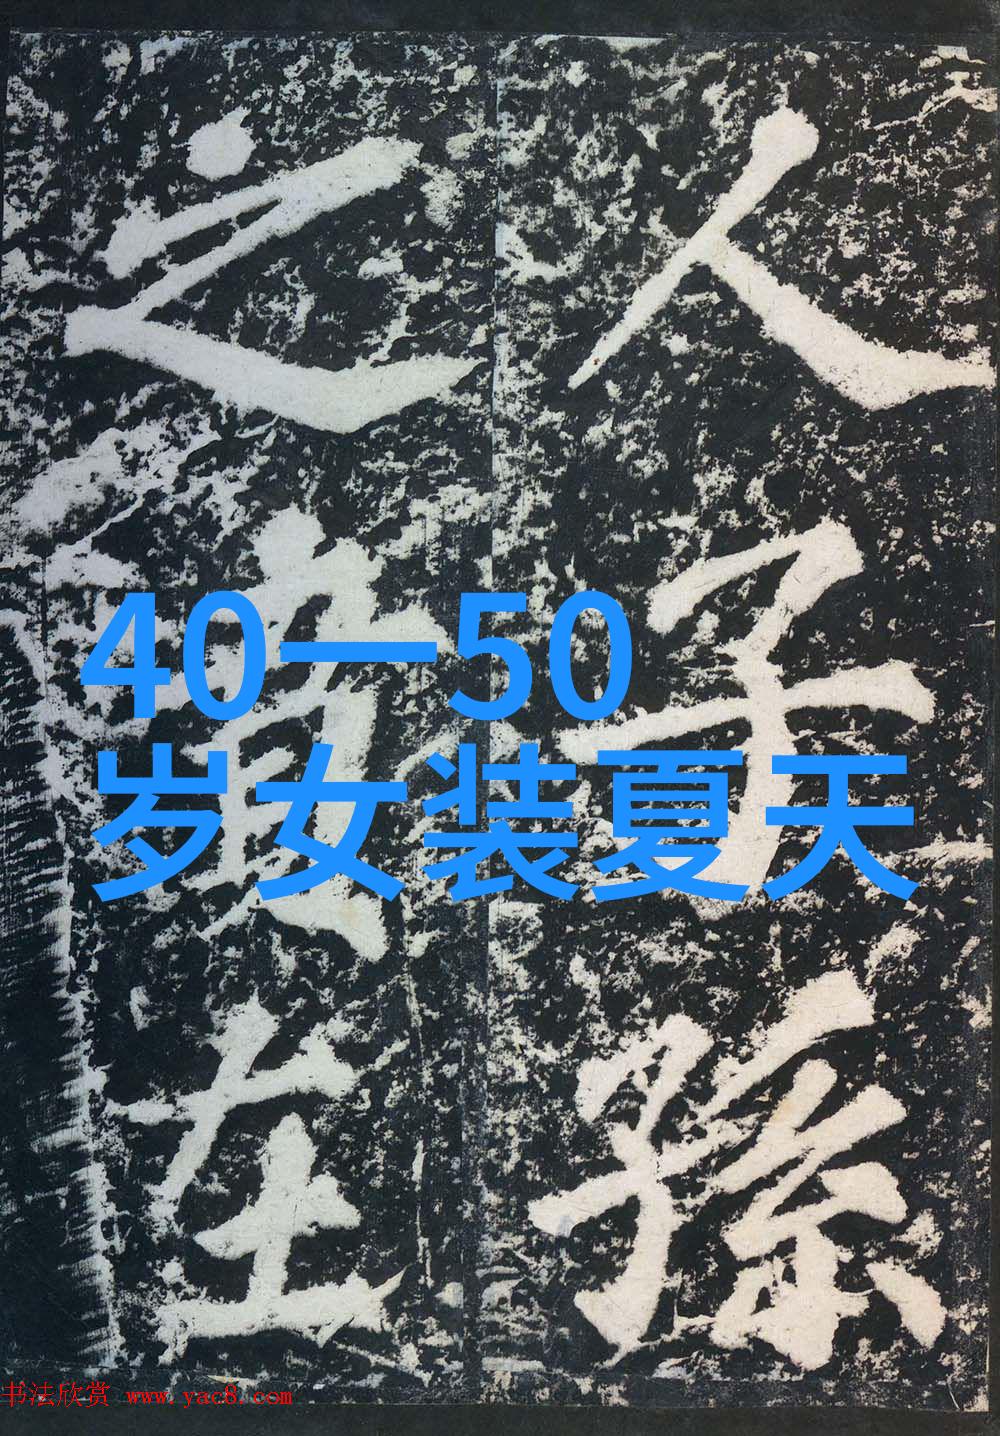 人于孙
之贵在
40一50
岁女装夏天
书法欣赏 www.yac8.com